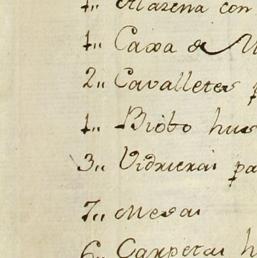 1,, Alazena con
1,, Caxa de
2,, Cavalletes p
1,, Bioбo hu
3,, Vidrieras pa
7,, Mesas
6,, Carpetas h